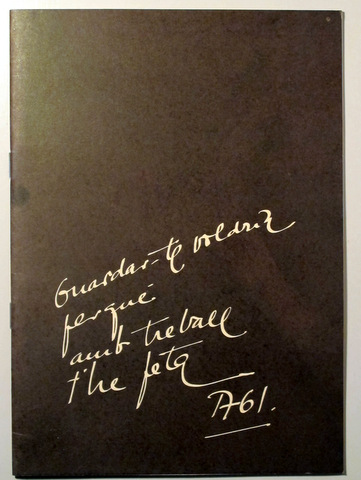 Guardar-te voldria
perquè
amb treball
t'he feta